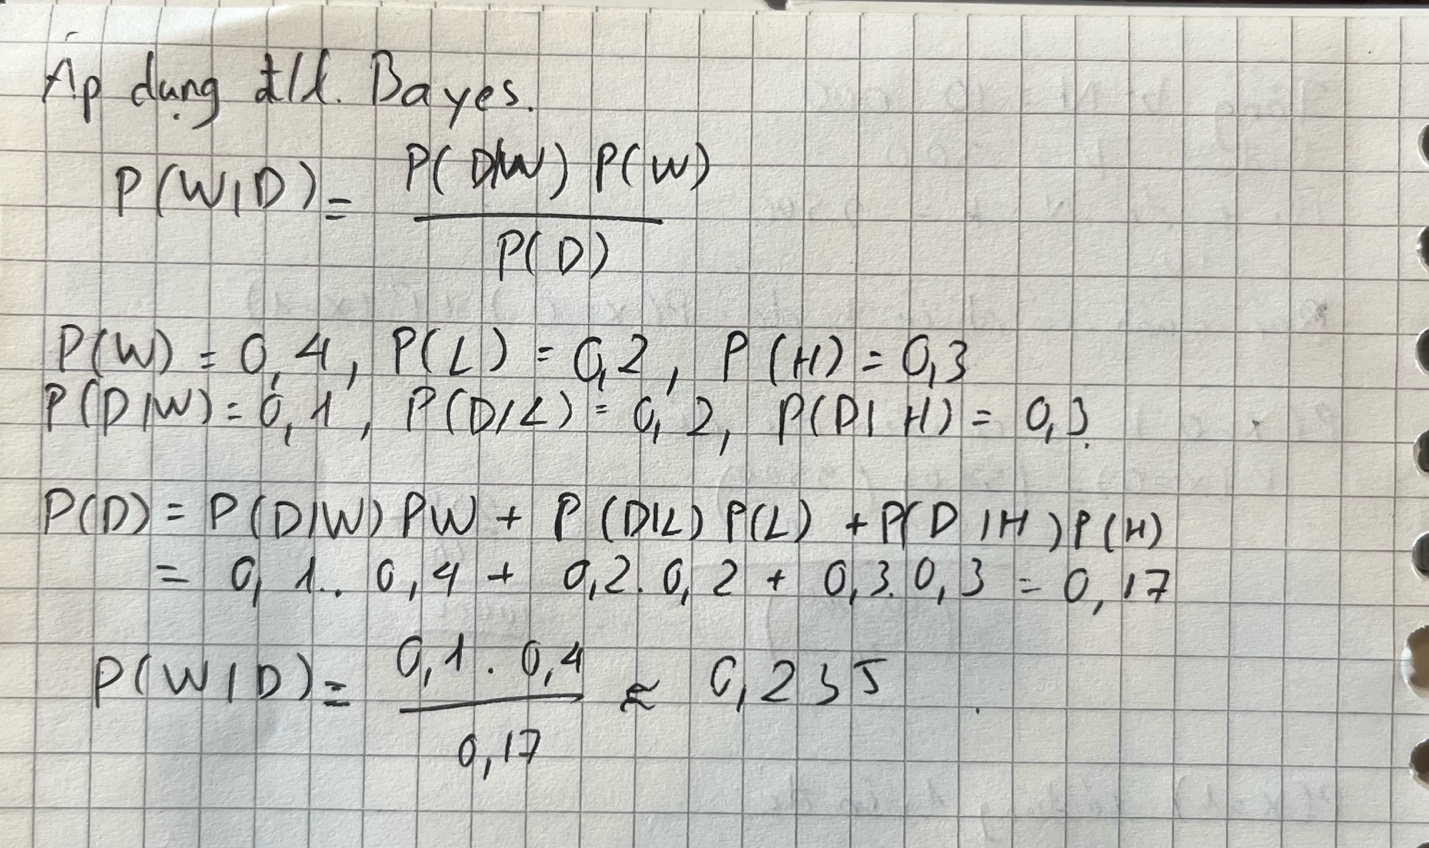 Áp dụng đ/l. Bayes.
P(W|D) = P(D|W) P(W) / P(D)
P(W) = 0,4, P(L) = 0,2, P(H) = 0,3
P(D|W) = 0,1, P(D|L) = 0,2, P(D|H) = 0,3.
P(D) = P(D|W) PW + P(D|L) P(L) + P(D|H) P(H)
= 0,1.. 0,4 + 0,2. 0,2 + 0,3. 0,3 = 0,17
P(W|D) = 0,1 . 0,4 / 0,17 ≈ 0,235.